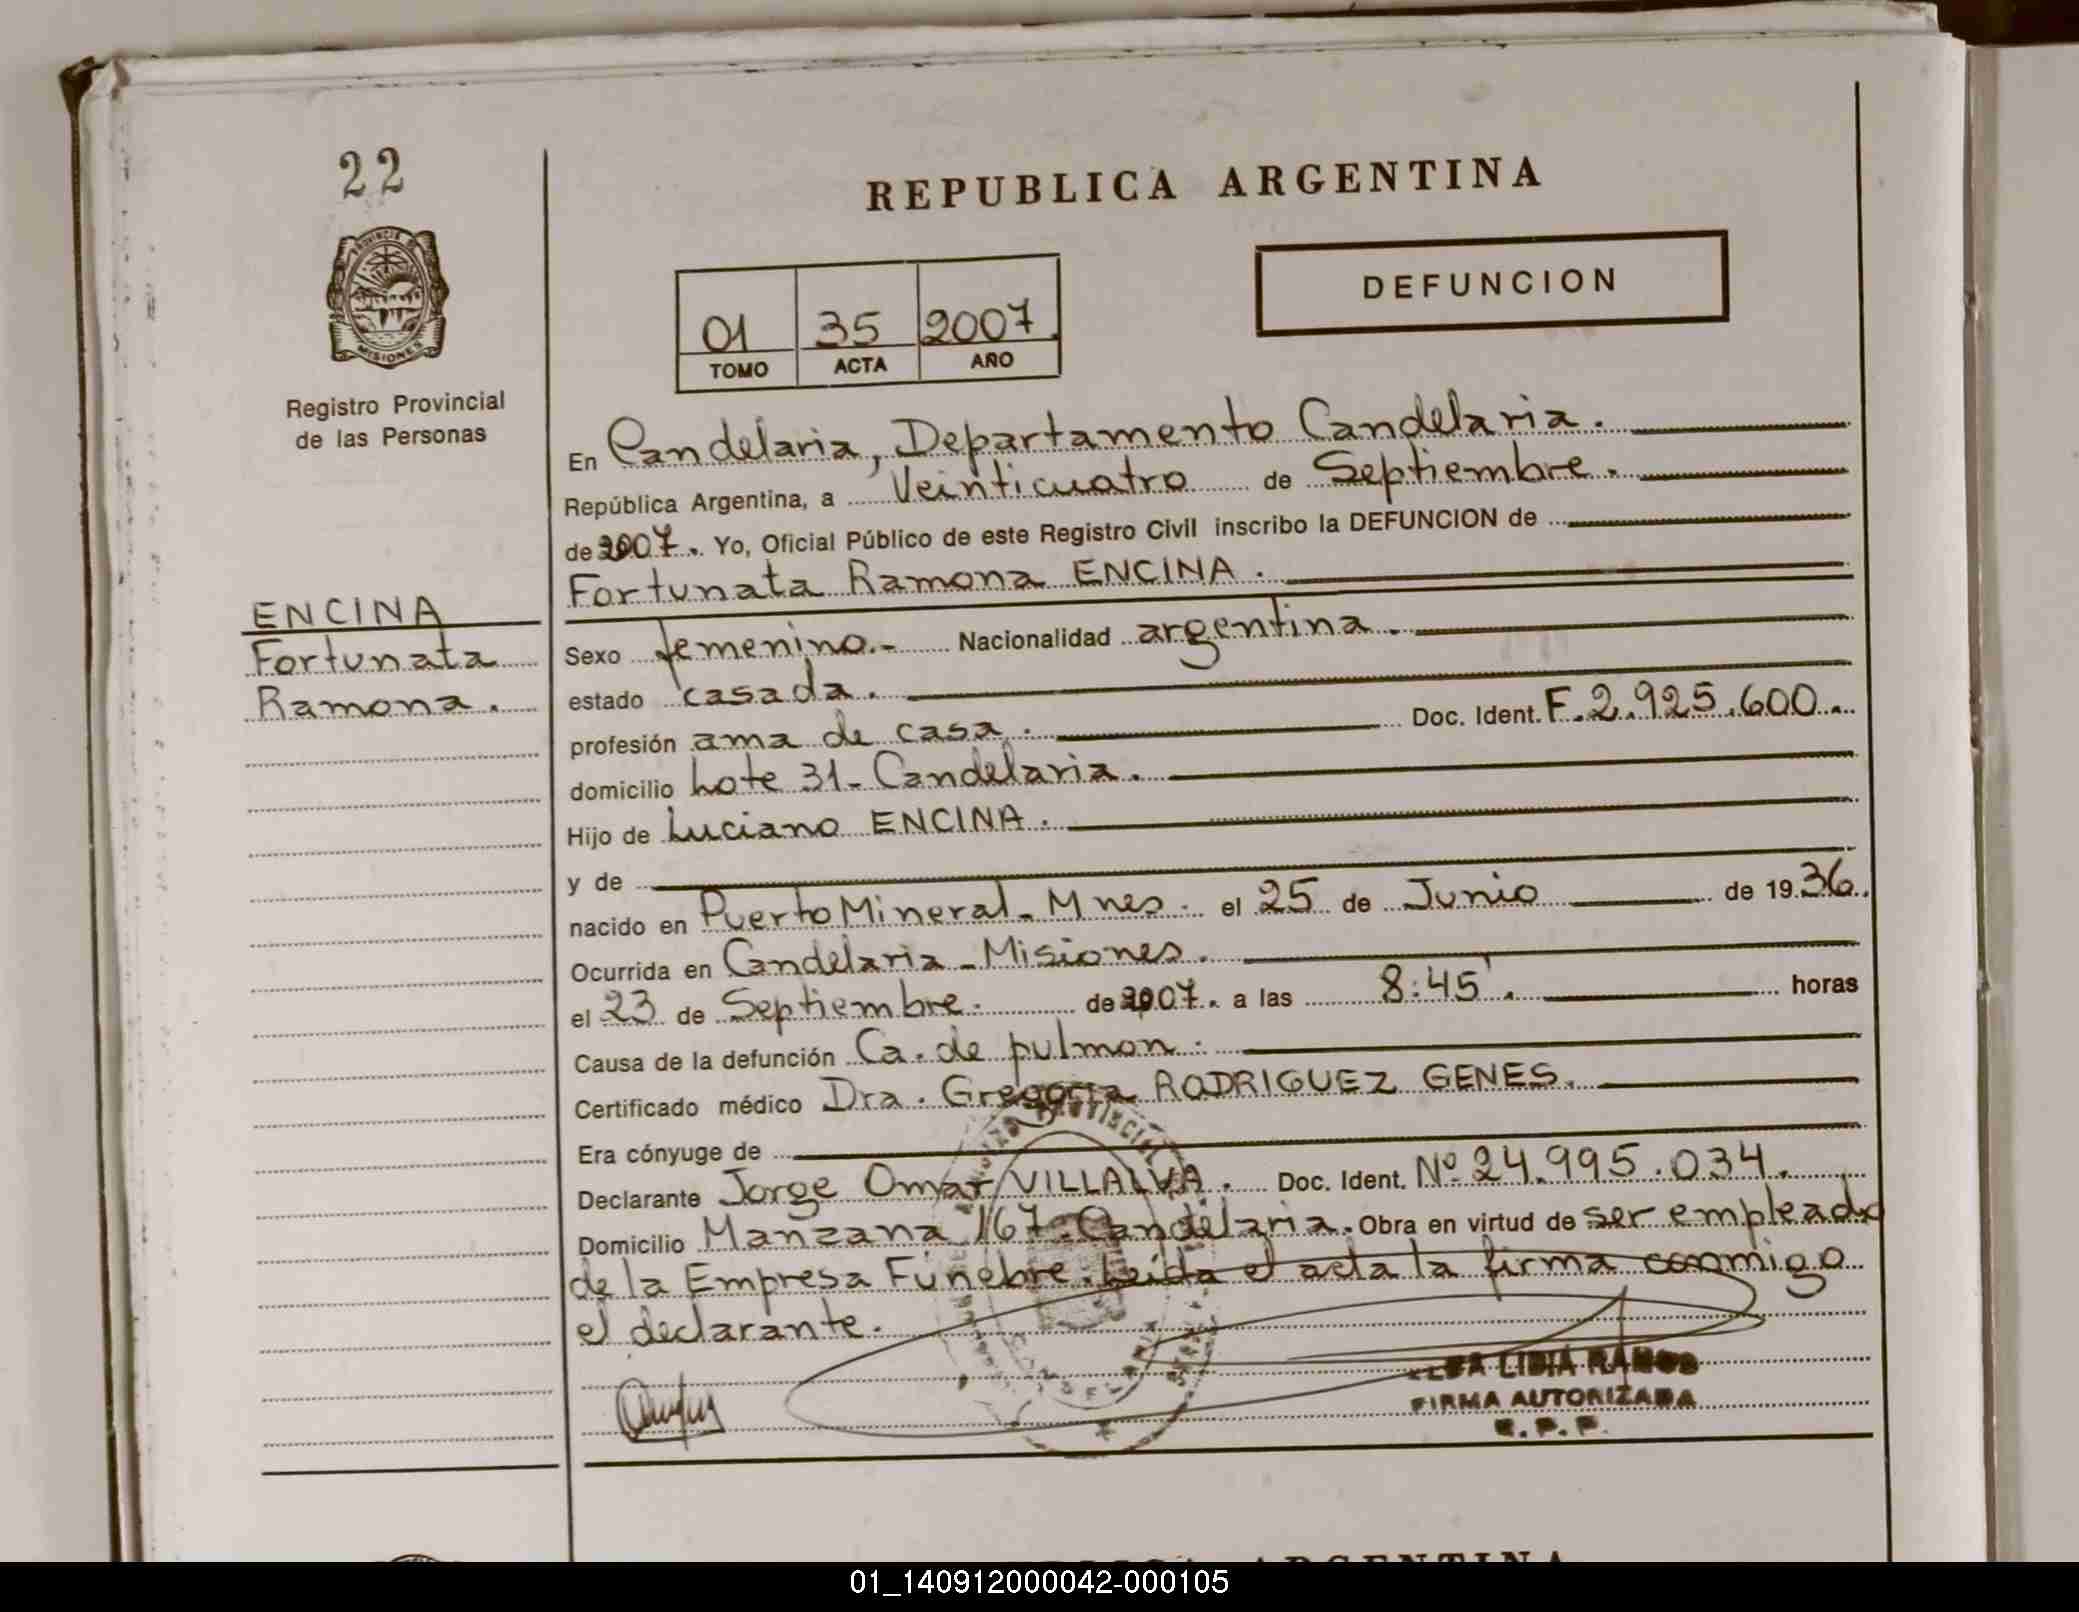 22
REPUBLICA ARGENTINA
PROVINCIA DE
MISIONES
DEFUNCION
01 35 2007
TOMO ACTA AÑO
Registro Provincial
de las Personas
ENCINA
Fortunata
Ramona.
En Candelaria, Departamento Candelaria.
República Argentina, a Veinticuatro de Septiembre.
de 2007. Yo, Oficial Público de este Registro Civil inscribo la DEFUNCION de
Fortunata Ramona ENCINA.
Sexo femenino.- Nacionalidad argentina.
estado casada.
profesión ama de casa. Doc. Ident. F.2.925.600.
domicilio Lote 31-Candelaria.
Hijo de Luciano ENCINA.
y de
nacido en Puerto Mineral-Mnes. el 25 de Junio de 1936.
Ocurrida en Candelaria-Misiones.
el 23 de Septiembre. de 2007. a las 8:45'. horas
Causa de la defunción Ca. de pulmon.
Certificado médico Dra. Gregoria RODRIGUEZ GENES.
Era cónyuge de
Declarante Jorge Omar VILLALVA. Doc. Ident. Nº 24.995.034.
Domicilio Manzana 167-Candelaria. Obra en virtud de ser empleado
de la Empresa Fúnebre. Leida el acta la firma conmigo
el declarante.
LIDIA RAMOS
FIRMA AUTORIZADA
R.P.P.
ARGENTINA
01_140912000042-000105